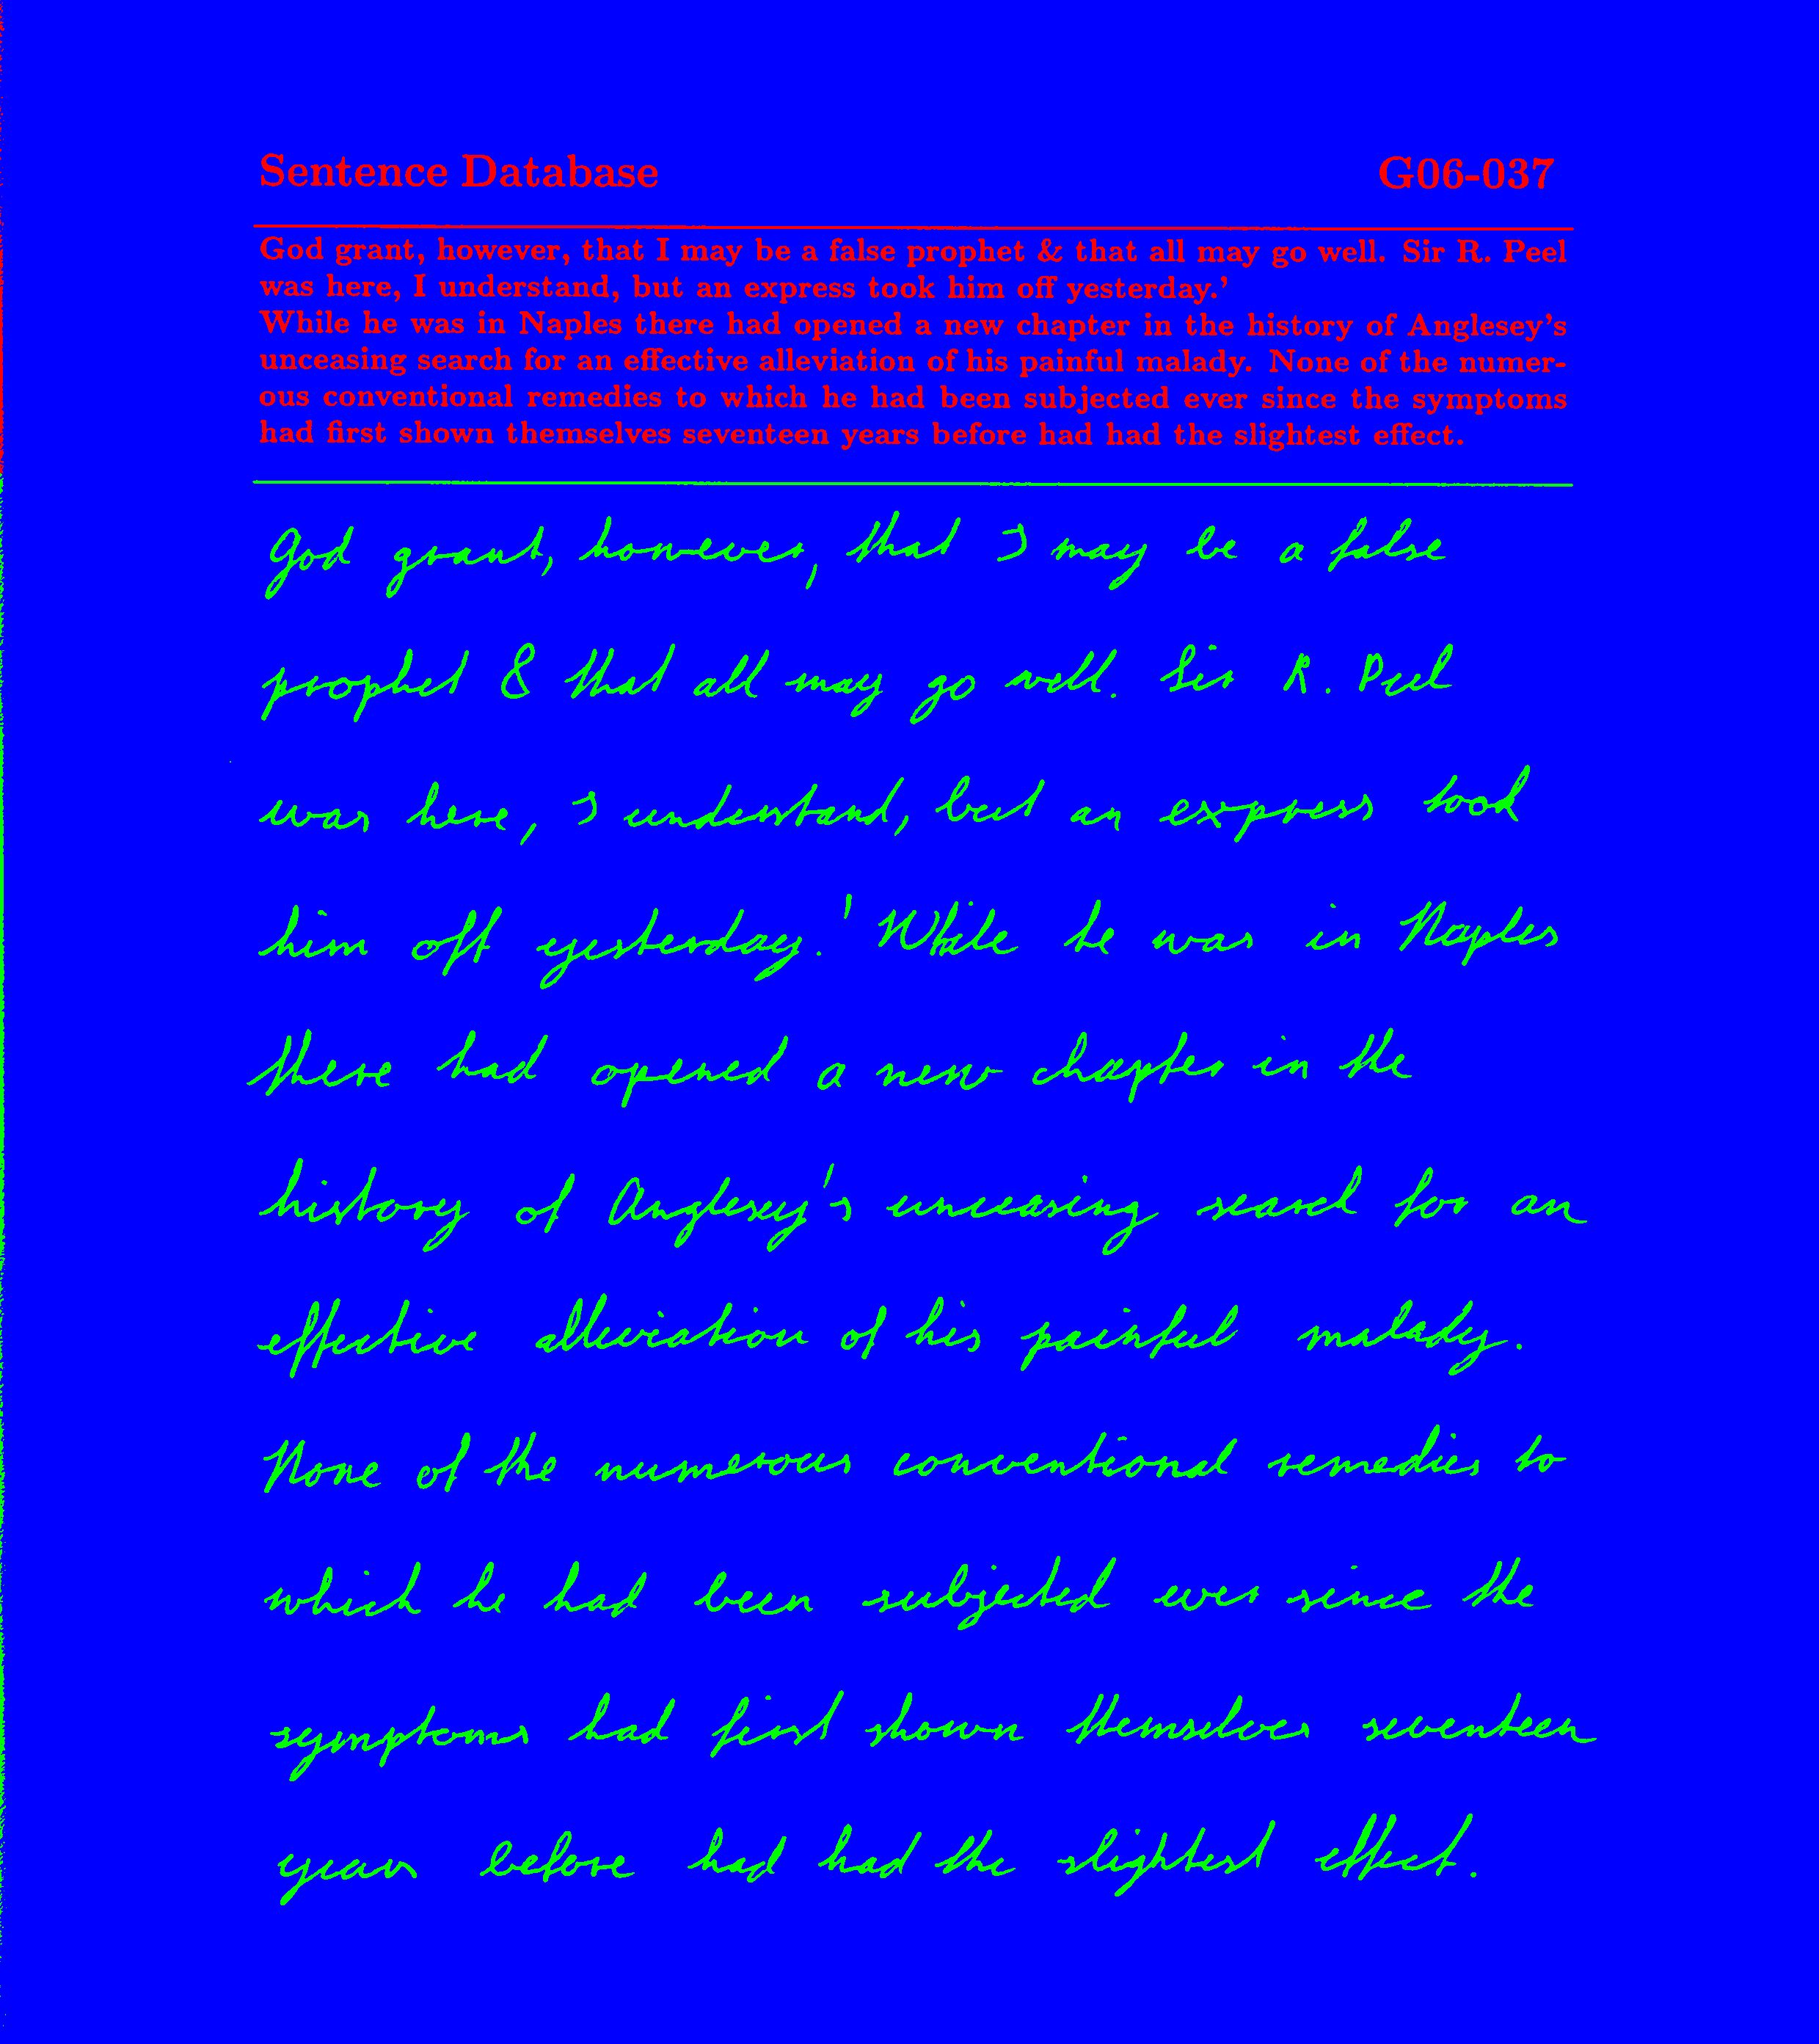 Sentence Database G06-037
God grant, however, that I may be a false prophet & that all may go well. Sir R. Peel
was here, I understand, but an express took him off yesterday.'
While he was in Naples there had opened a new chapter in the history of Anglesey's
unceasing search for an effective alleviation of his painful malady. None of the numer-
ous conventional remedies to which he had been subjected ever since the symptoms
had first shown themselves seventeen years before had had the slightest effect.
God grant, however, that I may be a false
prophet & that all may go well. Sir R. Peel
was here, I understand, but an express took
him off yesterday.' While he was in Naples
there had opened a new chapter in the
history of Anglesey's unceasing search for an
effective alleviation of his painful malady.
None of the numerous conventional remedies to
which he had been subjected ever since the
symptoms had first shown themselves seventeen
years before had had the slightest effect.